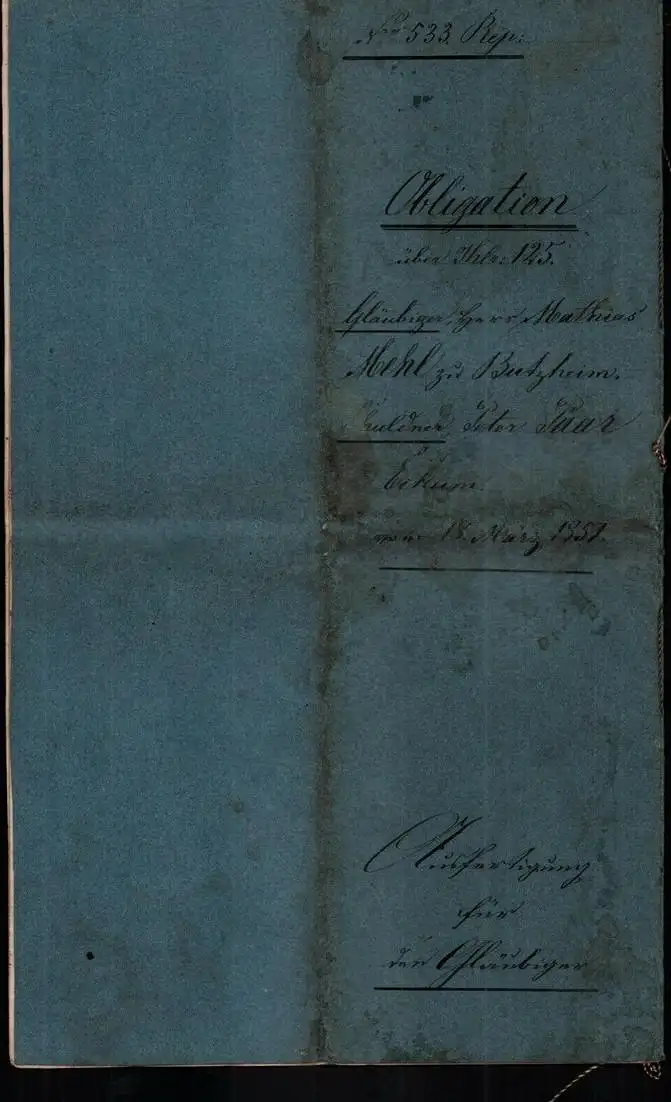 No 533. Rep:
Obligation
über Thlr: 125.
Gläubiger, Herr Mathias
Mehl zu Butzheim.
Schuldner, Peter
Eckum.
vom 18. März 1857.
Ausfertigung
für
den Gläubiger